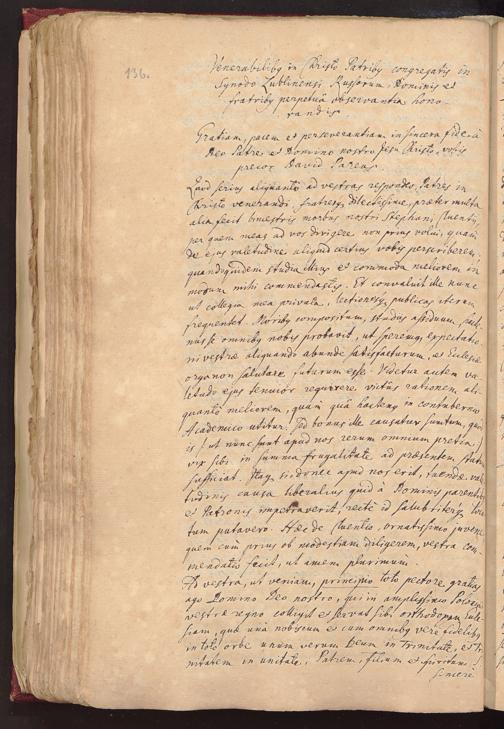 136.
Venerabilibq in Christo Patribq congregatis in
Synodo Lublinensi Russorum, Dominis et
fratribq perpetuâ observantiâ hono-
randis.
Gratiam, pacem et perseverantiam in sincera fide à
Deo Patre, et Domino nostro Jesu Christo, vobis
precor David Pareus.
Quod serius aliquanto ad vestras respondeo, Patres in
Christo venerandi, fratresq dilectissimi, præter multa
alia fecit bimestris morbus nostri Stephani
per quem meas ad vos dirigere non prius volui, quam
de ejus valetudine aliquid certius vobis perscriberem,
quandoquidem studia illius et commoda meliorem in
modum mihi commendastis. Et convaluit ille nunc
ut collegia mea privata, lectionesq publicas iterum
frequentet. Moribq compositum, studiis assiduum
se omnibq nobis probavit, ut speremq, expectatio-
ni vestræ aliquando abunde satisfacturum, et Ecclesiæ
organon salutare futurum esse. Videtur autem va-
letudo ejus tenuior requirere victûs rationem ali-
quantò meliorem, quam quâ hactenq in contubernio
Academico utitur. Sed bonus ille causatur sumtum,
is (ut nunc sunt apud nos rerum omnium pretia)
vix sibi in summa frugalitate ad præsentem
sufficiat. Itaq si donec apud nos erit, tuendæ va-
tudinis causa liberalius quid à Dominis parentibq
et Patronis impetraverit, recte id salubriterq
tum putavero. Hæc de ornatissimo juvene
quem cum prius ob modestiam diligerem, vestra com-
mendatio fecit, ut amem plurimum.
Ad vestra, ut veniam, principio toto pectore gratias
ago Domino Deo nostro, qui in amplissimo Poloniæ
vestræ regno colligit et servat sibi orthodoxam
siam, quæ unà nobiscum et cum omnibq vere fidelibq
in toto orbe unum verum Deum in Trinitate, et Tri-
nitatem in unitate, Patrem, filium et spiritum S.
sincere